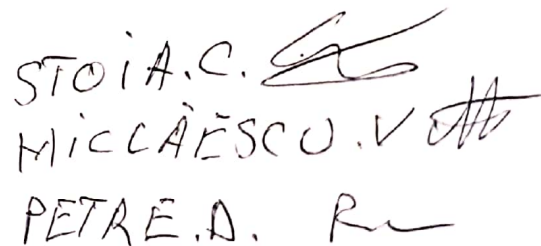 STOiA.C.
MiCCĂESCU.V
PETRE.D.